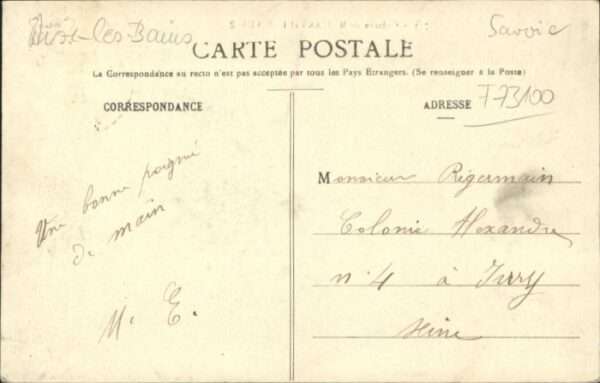 Aix-les-Bains
Savoie
CARTE POSTALE
La Correspondance au recto n'est pas acceptée par tous les Pays Etrangers. (Se renseigner à la Poste)
CORRESPONDANCE
ADRESSE
T73100
Une bonne poigné
de main
M. E.
Monsieur Régermain
Colonie Alexandre
n° 4 à Ivry
Seine